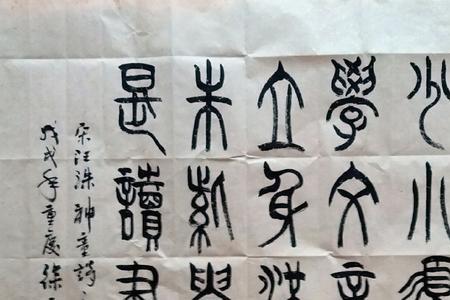 少小須
學文章
立身滿
朱紫貴
是讀書
宋汪洙神童詩
戊戌年重慶徐